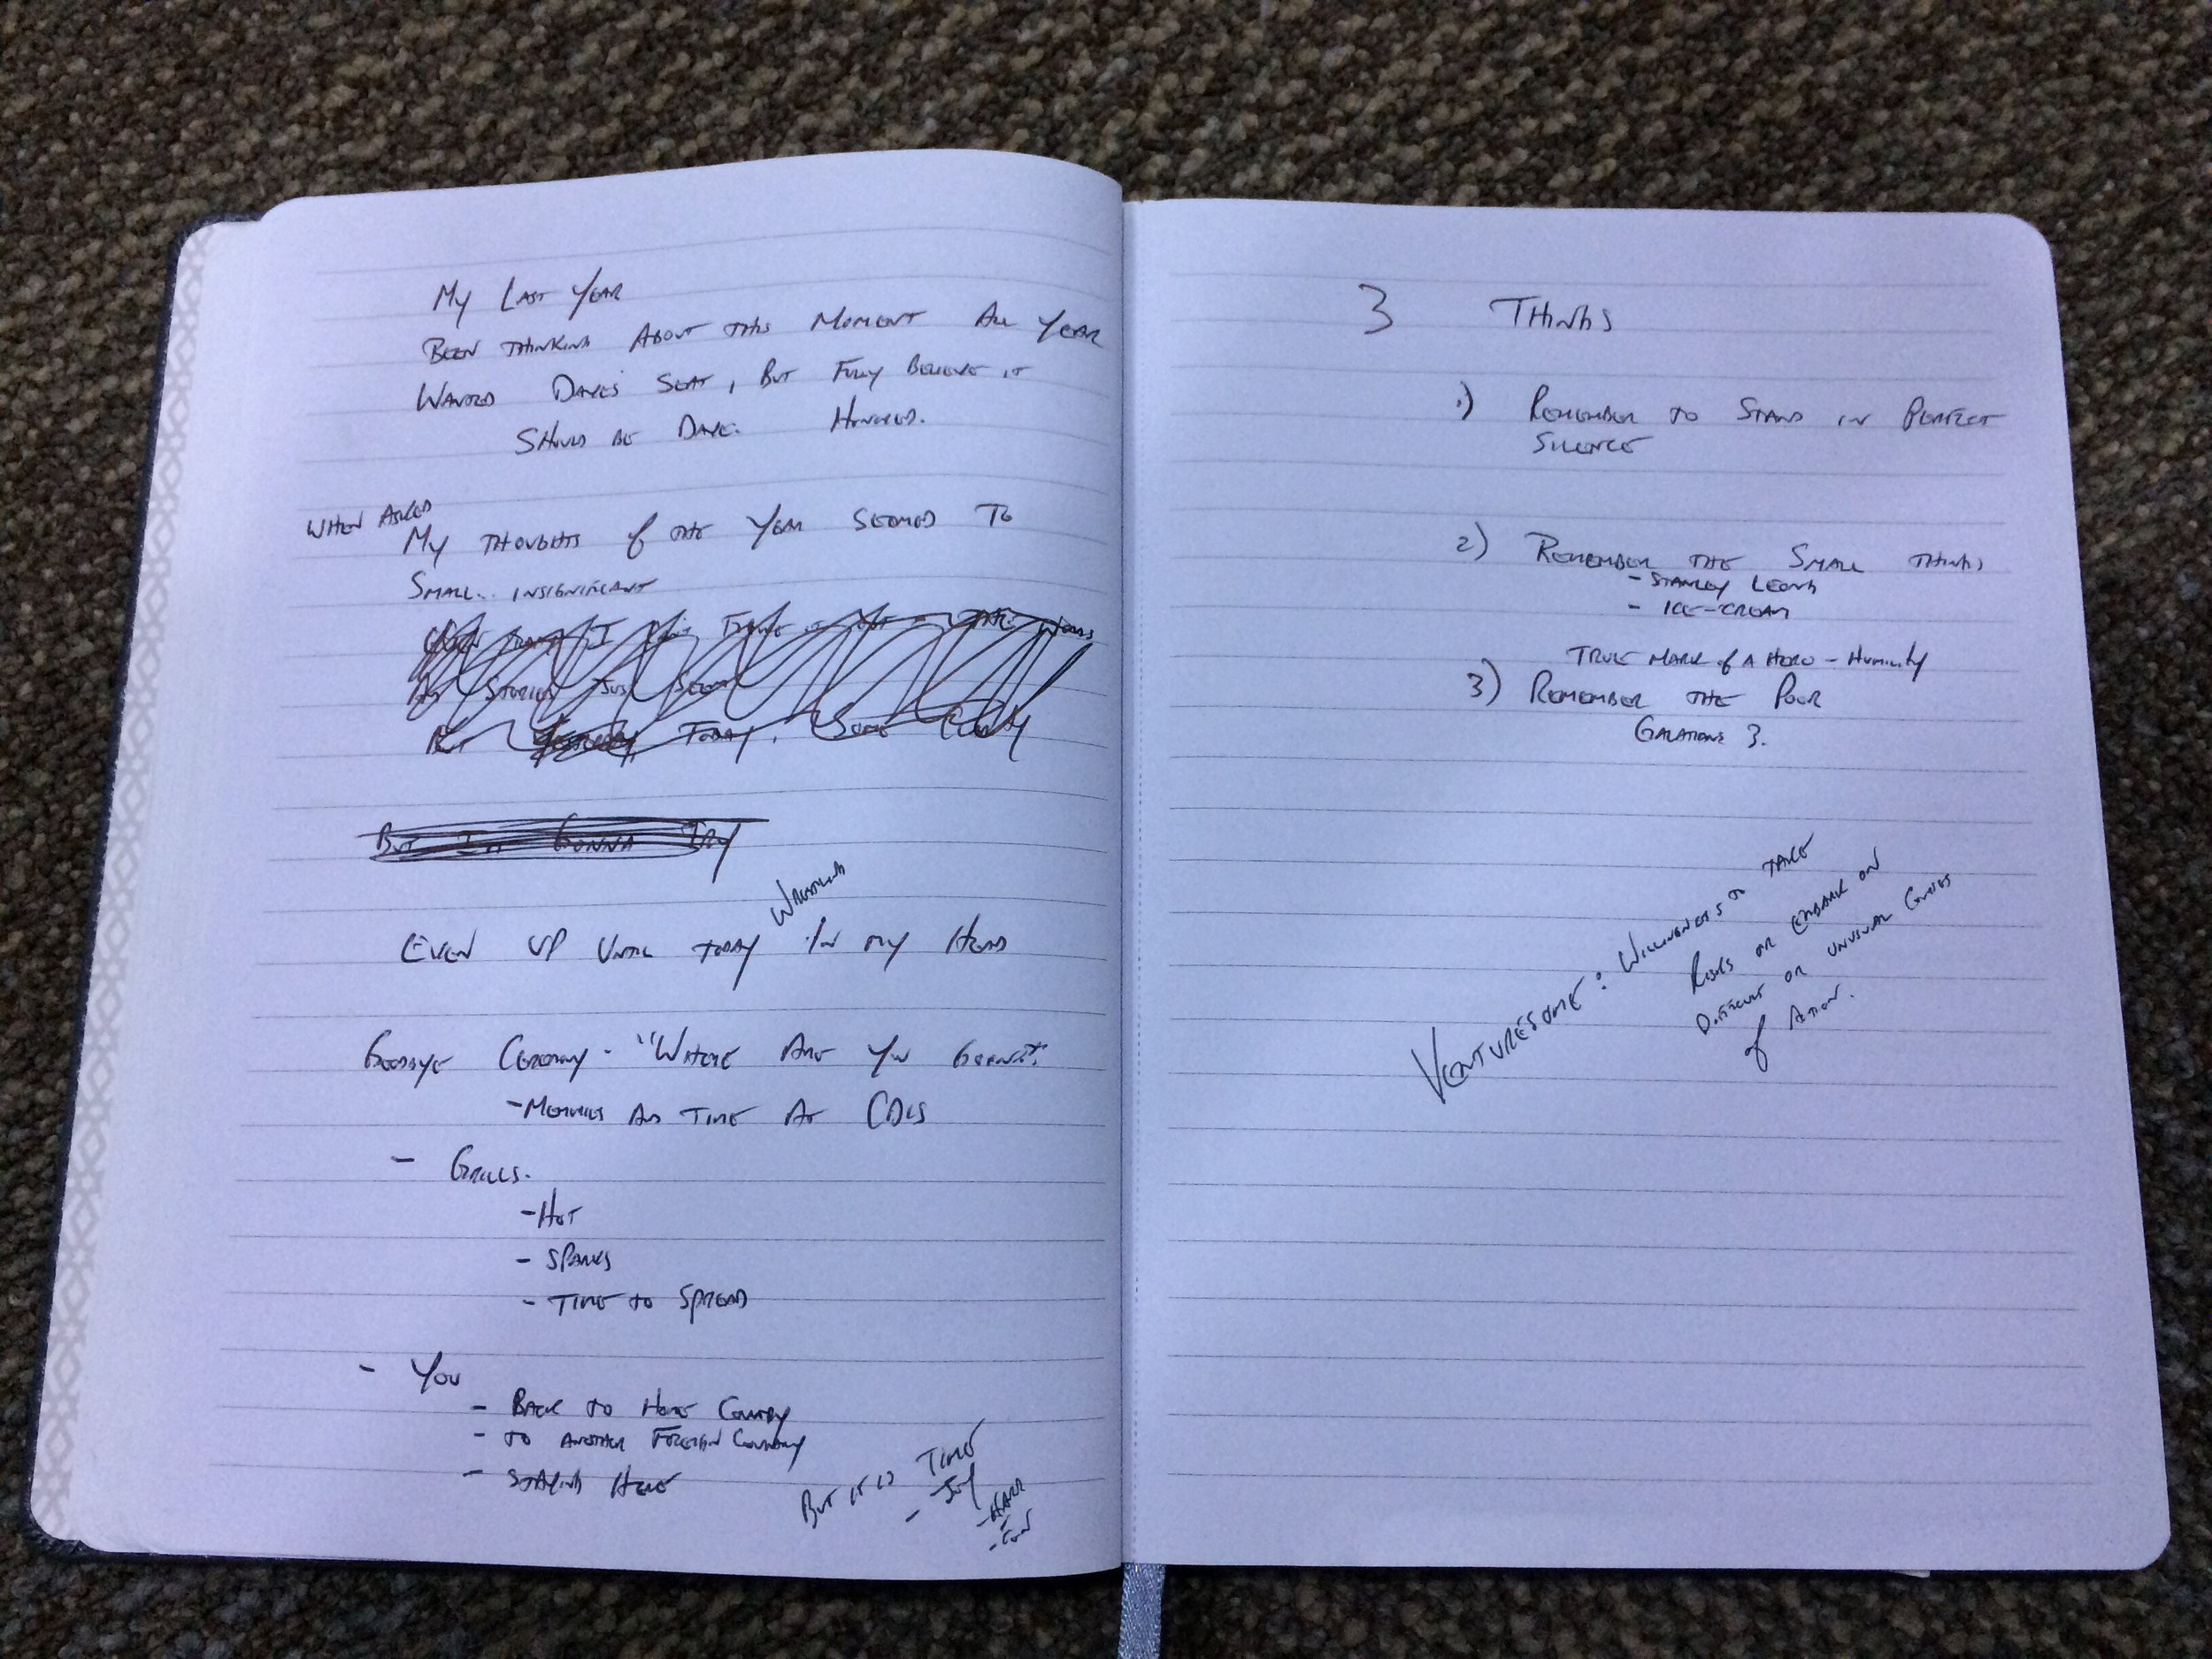 My Last Year
Been thinking About this Moment All Year
Wanted Dave's Seat, But Fully Believe it
Should be Dave. Honored.
When Asked
My thoughts of the Year seemed to
Small.. insignificant
Words
My Stories Just Seem
But Today, Some
But I'm Gonna Try
Wrestling
Even up until today in my Head
Goodbye Ceremony - "Where Are You Going?"
- Memories And Time At CDLS
- Grills.
- Hot
- Sparks
- Time to Spread
- You
- Back to Home Country
- to another Foreign Country
- Staying Here
But it is Time
- Joy
- Hard
3 Things
1) Remember to Stand in Perfect
Silence
2) Remember the Small things
- Stanley Leong
- Ice-cream
True mark of a Hero - Humility
3) Remember the Poor
Galatians 3.
Venturesome: Willingness to take
Risks or embark on
Difficult or unusual Courses
of Action.